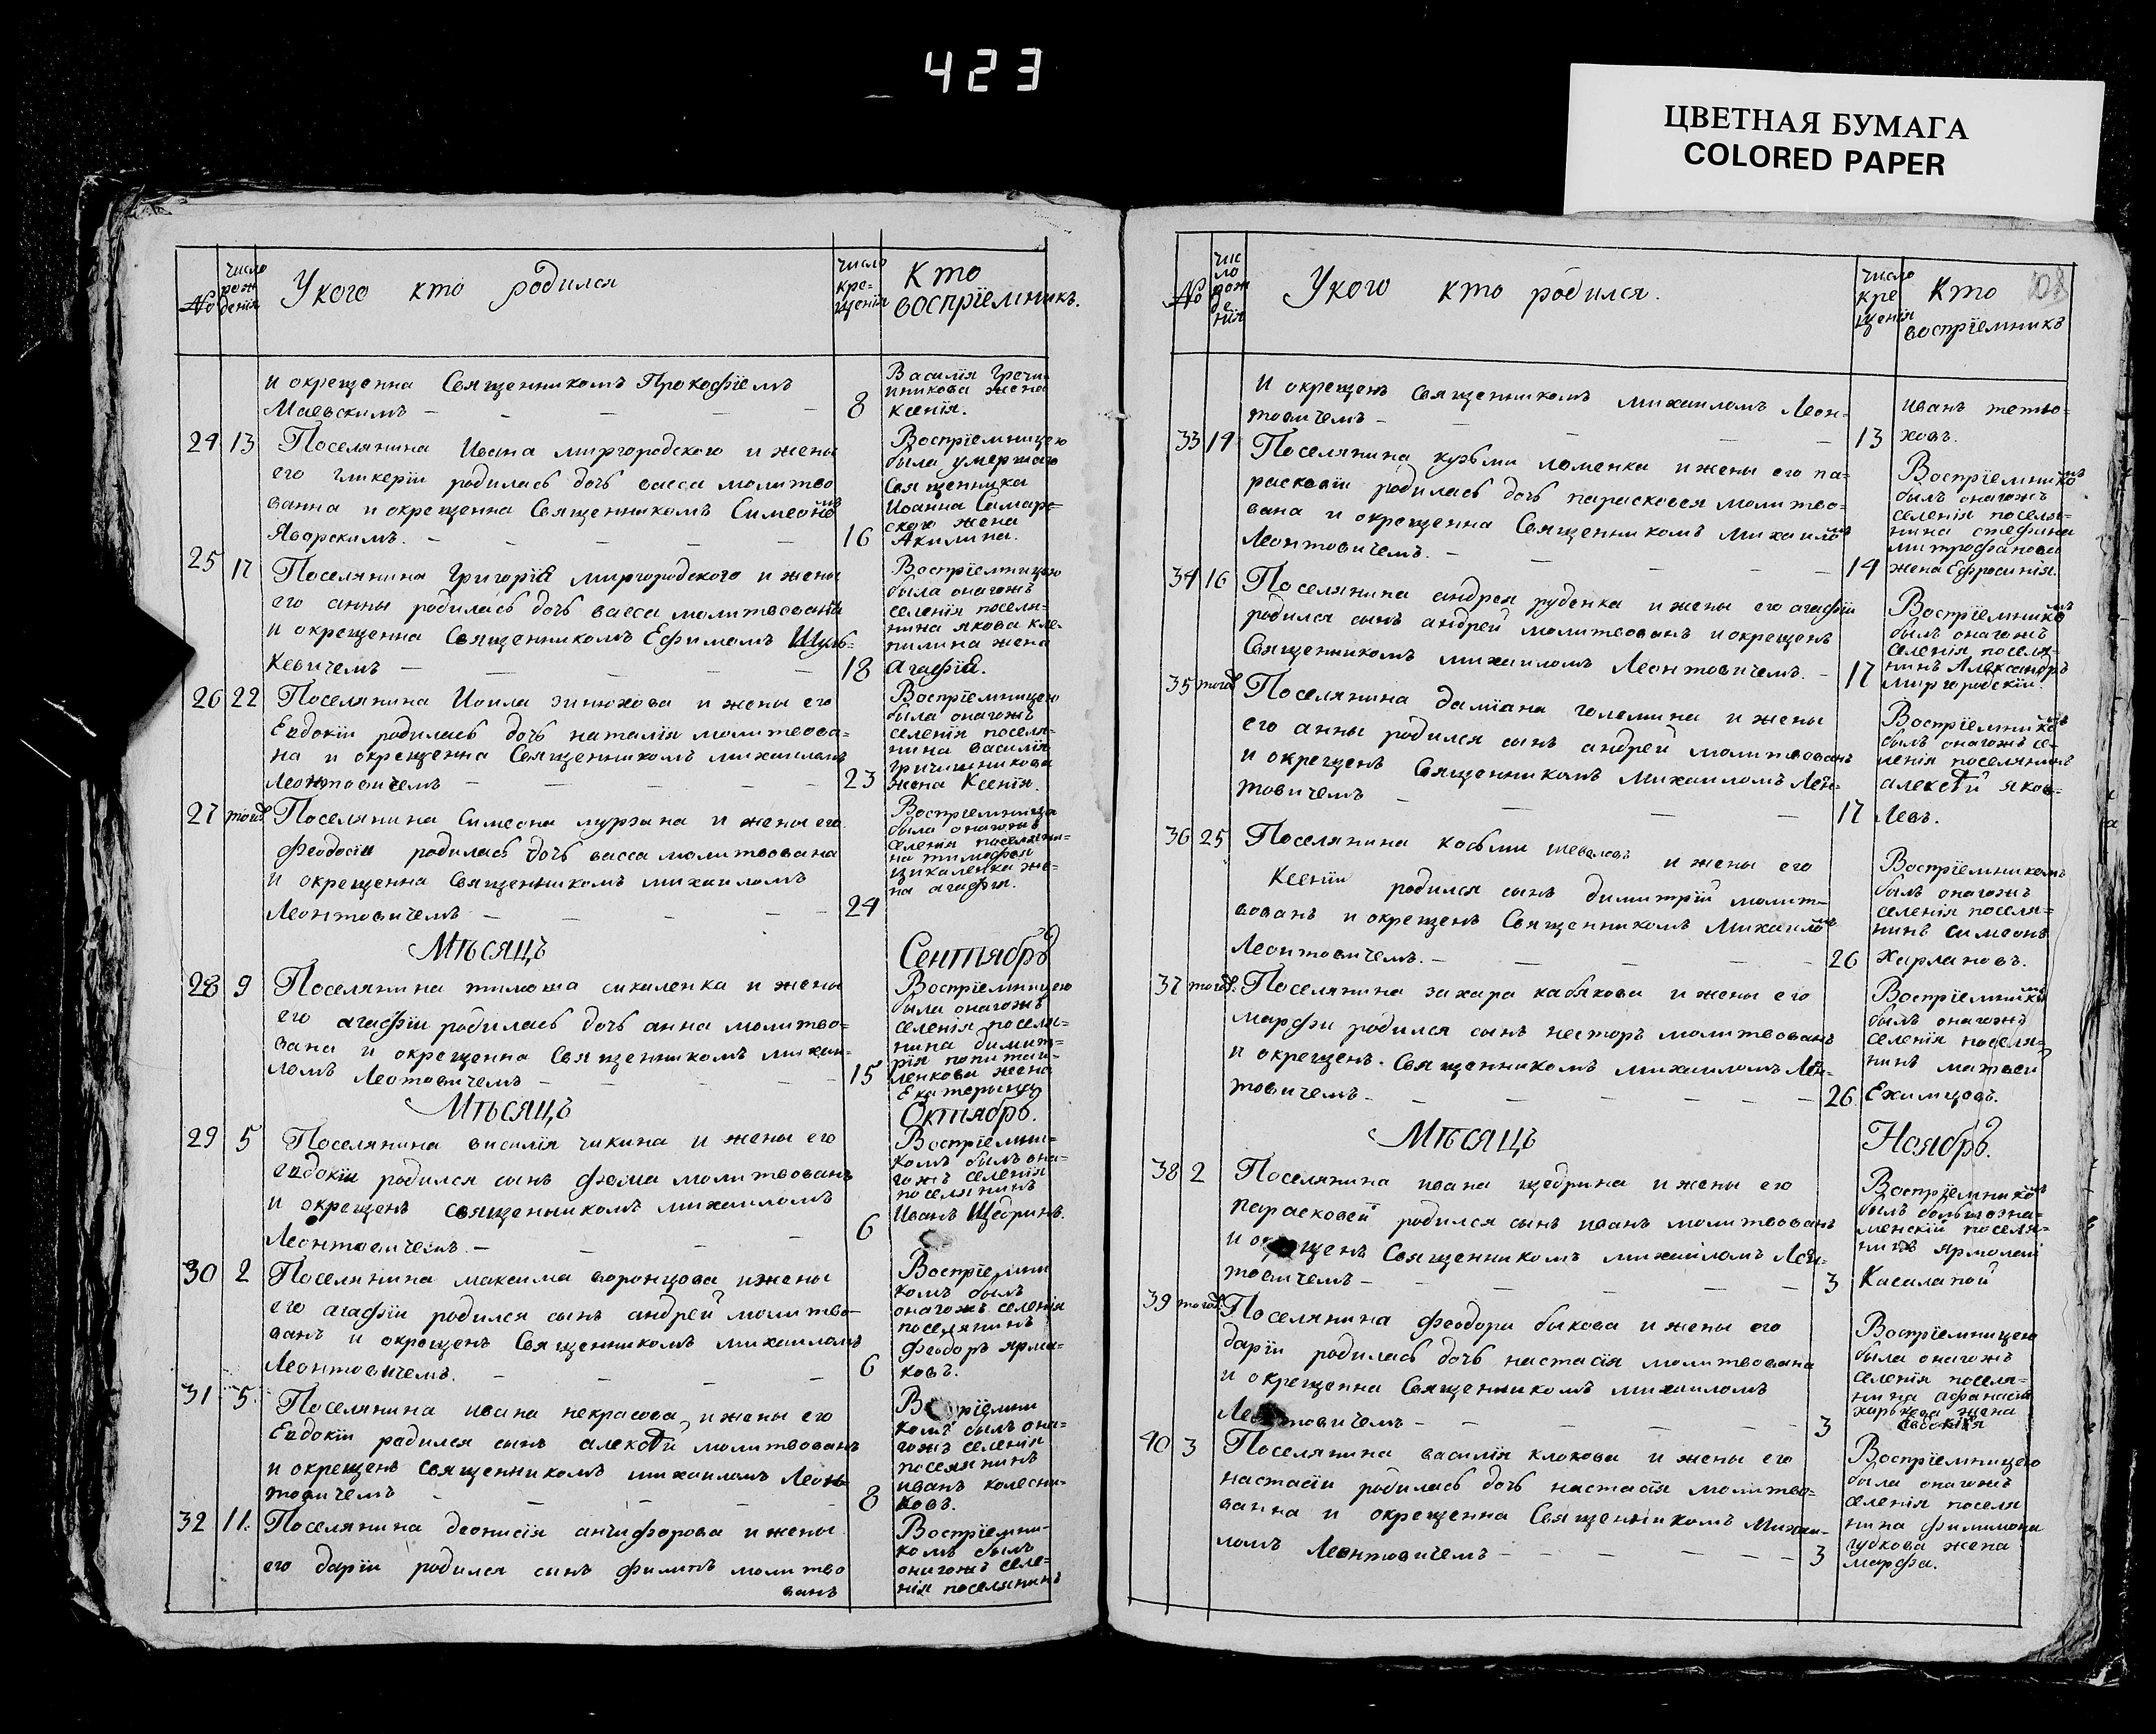 423
ЦВЕТНАЯ БУМАГА
COLORED PAPER
№
число рож дения
Укого кто родился
число кре- щенія
Кто воспріемникъ.
и окрещенна Священникомъ Прокофіемъ
Маевскимъ — 8
Василія Гречи
шникова жена
Ксенія.
24 13 Поселянина Ивана миргородского и жены
его гликеріи родилась дочь васса молитво
ванна и окрещенна Священникомъ Симеономъ
Яворскимъ. — 16
Воспріемницею
была умершаго
Священника
Иоанна Самарс-
ского жена
Акилина.
25 17 Поселянина Григорія миргородского и жены
его анны родилась дочь васса молитвованна
и окрещенна Священникомъ Ефимомъ Шуль-
кевичемъ — 18
Воспріемницею
была онагожъ
селенія поселя-
нина якова кле-
пилина жена
агафія.
26 22 Поселянина Иоила зинюхова и жены его
Евдокіи родилась дочь наталія молитвова-
на и окрещенна Священникомъ михаиломъ
Леонтовичемъ — 23
Воспріемницею
была онагожъ
селенія поселя-
нина василія
гричишникова
жена Ксенія.
27 тогож. Поселянина Симеона мурзана и жены его
Феодосіи родилась дочь васса молитвована
и окрещенна Священникомъ михаиломъ
Леонтовичемъ — 24
Воспріемница
была онагожъ
селенія поселяни-
на тимофея
цикаленка же-
на агафія.
Мѣсяцъ Сентябрь
28 9 Поселянина тимоша сикаленка и жены
его агафіи родилась дочь анна молитво-
вана и окрещенна Священникомъ михаи-
ломъ Леотовичемъ — 15
Воспріемницею
была онагожъ
селенія поселя-
нина димит-
рія попитай-
ленкова жена
Екатерына
Мѣсяцъ Октябрь.
29 5 Поселянина василія чикина и жены его
евдокіи родился сынъ фома молитвованъ
и окрещенъ священникомъ михаиломъ
Леонтовичемъ. — 6
Воспріемни-
комъ былъ она-
гожъ селенія
поселянинъ
Иванъ Щебринъ.
30 2 Поселянина максима воронцова и жены
его агафіи родился сынъ андрей молитво-
ванъ и окрещенъ Священникомъ михаиломъ
Леонтовичемъ. — 6
Воспріемни
комъ былъ
онагожъ селенія
поселянинъ
Феодоръ ярма-
ковъ.
31 5. Поселянина ивана некрасова, и жены его
Евдокіи родился сынъ алексѣй молитвованъ
и окрещенъ священникомъ михаиломъ Леон-
товичемъ — 8
Воспріемни
комъ былъ она-
гожъ селенія
поселянинъ
иванъ колесни-
ковъ.
32 11. Поселянина деонисія анчифорова и жены
его даріи родился сынъ филипъ молитво
ванъ
Воспріемни-
комъ былъ
онагожъ селе-
нія поселянинъ
№
чис ло рож де нія
Укого кто родился.
число кре щенія
Кто воспріемникъ
108
и окрещенъ Священникомъ михаиломъ Леон-
товичемъ — 13
иванъ тетю-
ховъ.
33 14 Поселянина кузьми ломенка и жены его па-
расковіи родилась дочь парасковея молитво-
вана и окрещенна Священникомъ Михаиломъ
Леонтовичемъ. — 14
Воспріемникомъ
былъ онагожъ
селенія поселя-
нина стефана
митрофанова
жена Ефросинія.
34 16 Поселянина андрея руденка и жены его агафіи
родился сынъ андрей молитвованъ и окрещенъ
Священникомъ михаиломъ Леонтовичемъ. — 17
Воспріемникомъ
былъ онагожъ
селенія поселя-
нинъ Александръ
миргородскій.
35 тогож. Поселянина даміана големина и жены
его анны родился сынъ андрей молитвованъ
и окрещенъ Священникомъ Михаиломъ Леон-
товичемъ — 17
Воспріемникомъ
былъ онагожъ се-
ленія поселянинъ
алексѣй яков-
левъ.
36 25 Поселянина косьми шевалевъ и жены его
Ксеніи родился сынъ димитрій молит-
вованъ и окрещенъ Священникомъ Михаиломъ
Леонтовичемъ. — 26
Воспріемникомъ
былъ онагожъ
селенія поселя-
нинъ симеонъ
Харлановъ.
37 тогож. Поселянина захара кабякова и жены его
марфи родился сынъ несторъ молитвованъ
и окрещенъ. Священникомъ михаиломъ Леон-
товичемъ. — 26
Воспріемникомъ
былъ онагожъ
селенія поселя-
нинъ матвей
Ехимцовъ.
Мѣсяцъ Ноябрь.
38 2 Поселянина ивана щебрина и жены его
парасковеи родился сынъ иванъ молитвованъ
и окрещенъ Священникомъ михаиломъ Леон-
товичемъ — 3
Воспріемникомъ
былъ большозна-
менскій поселя-
нинъ ярмолай
Касилапой
39 тогож. Поселянина Феодора быкова и жены его
даріи родилась дочь настасія молитвована
и окрещенна Священникомъ михаиломъ
Леонтовичемъ — 3
Воспріемницею
была онагожъ
селенія поселя-
нина афанасія
харькова жена
Евдокія
40 3 Поселянина василія клокова и жены его
настасіи родилась дочь настасія молитво-
ванна и окрещенна Священникомъ Михаи-
ломъ Леонтовичемъ — 3
Воспріемницею
была онагожъ
селенія поселя
нина филимона
гудкова жена
марфа.